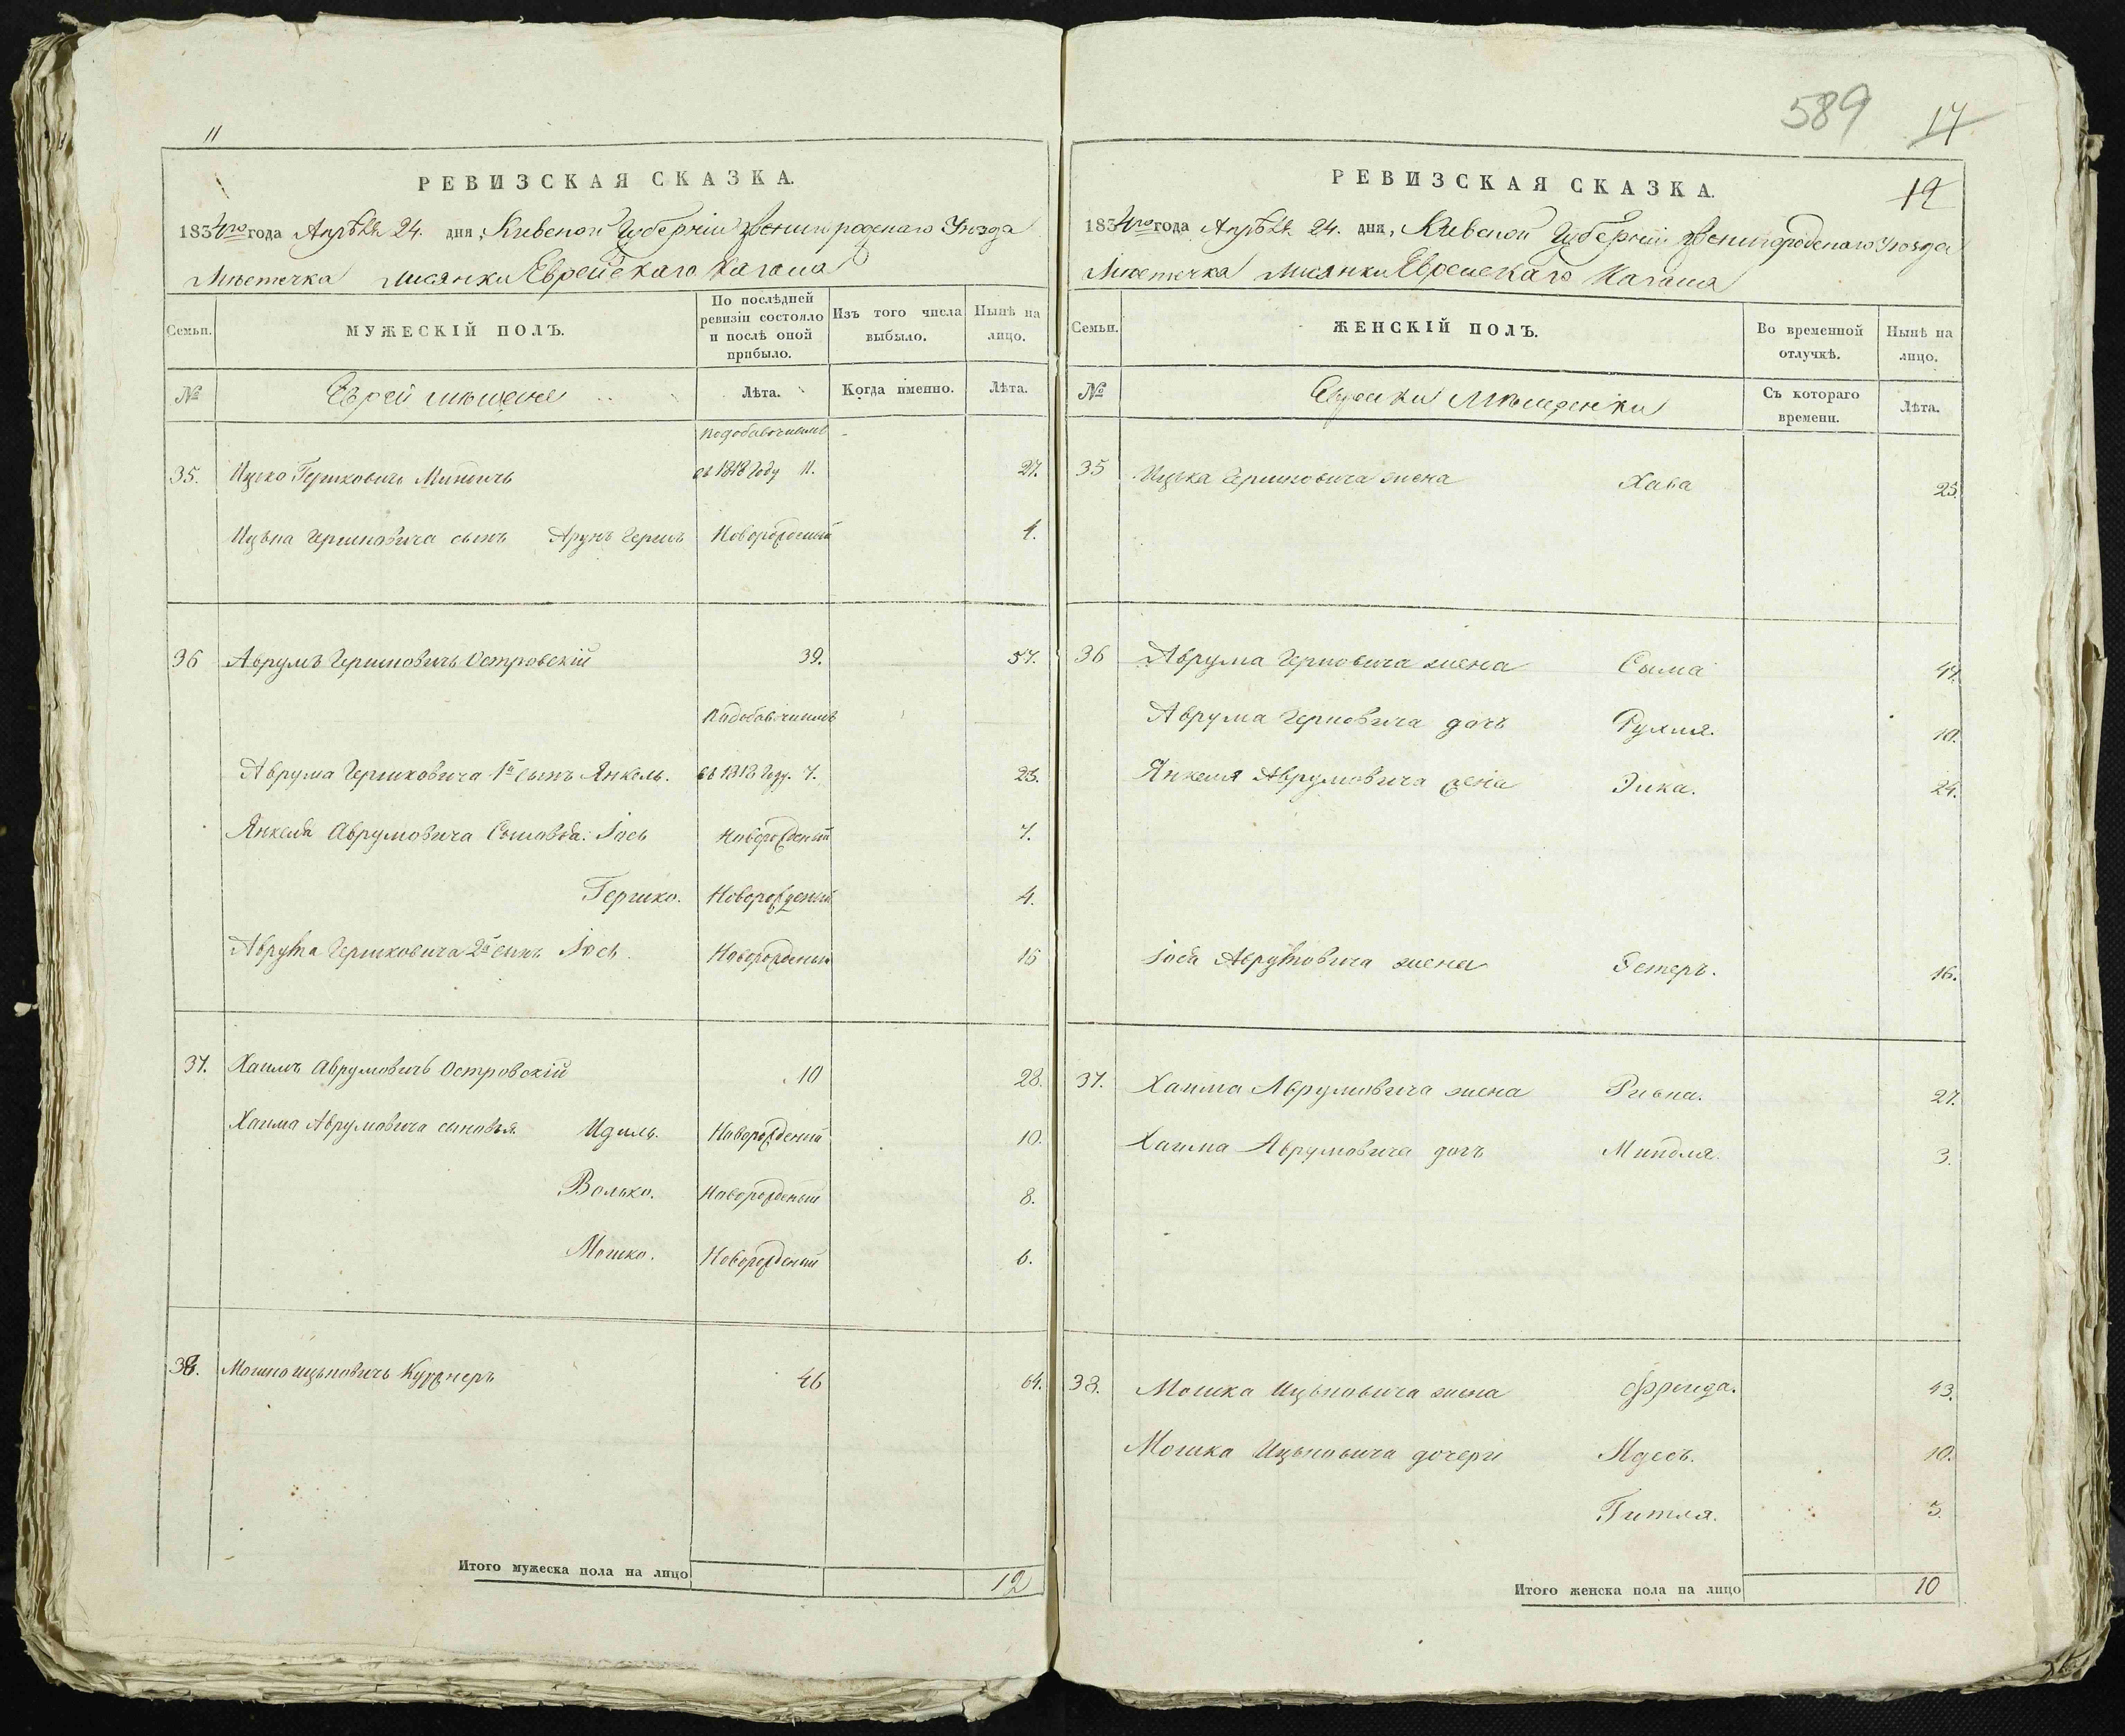 11
РЕВИЗСКАЯ СКАЗКА.
1834го года Апрѣля 24. дня, Киевской Губерніи Звенигородскаго Уѣзда
Мѣстечка Лисянки Еврейскаго Кагала
Семьи.
МУЖЕСКІЙ ПОЛЪ.
По послѣдней ревизіи состояло и послѣ оной прибыло.
Изъ того числа выбыло.
Нынѣ на лицо.
№
Еврей мещане
Лѣта.
Когда именно.
Лѣта.
35. Ицко Гершковичъ Миндичъ
въ 1818 Году 11. 27.
Ицька Гершковича сынъ Арунъ Гершъ Новорожденый 1.
36 Аврумъ Гершковичъ Островскій 39. 57.
Аврума Гершковича 1й сынъ Янкель. въ 1818 Году. 7. 23.
Янкеля Аврумовича Сыновья: Іось Новорожденый 7.
Гершко. Новорожденый 4.
Аврума Гершковича 2й сынъ Іось Новорожденый 15
37. Хаимъ Аврумовичъ Островскій 10 28.
Хаима Аврумовича сыновья Идель. Новорожденый 10.
Волько. Новорожденый 8.
Мошко. Новорожденый 6.
38. Мошко Ицьковичъ 46 64.
Итого мужеска пола на лицо 12
589 17
12
РЕВИЗСКАЯ СКАЗКА.
1834го года Апрѣля 24. дня, Киевской Губерніи Звенигородскаго Уѣзда
Мѣстечка Лисянки Еврейскаго Кагала
Семьи.
ЖЕНСКІЙ ПОЛЪ.
Во временной отлучкѣ.
Нынѣ на лицо.
№
Еврейки Мѣщанки
Съ котораго времени.
Лѣта.
35 Ицька Гершковича жена Хава 25.
36 Аврума Герковича жена Сыма 47.
Аврума Герковича дочь Рухля. 10.
Янкеля Аврумовича жена Элка. 24.
Іося Аврумовича жена Эстеръ. 16.
37. Хаима Аврумовича жена Ривка. 27.
Хаима Аврумовича дочь Миндля. 3.
38. Мошка Ицьковича жена Фрейда. 43.
Мошка Ицьковича дочери 10.
Гитля. 3.
Итого женска пола на лицо 10